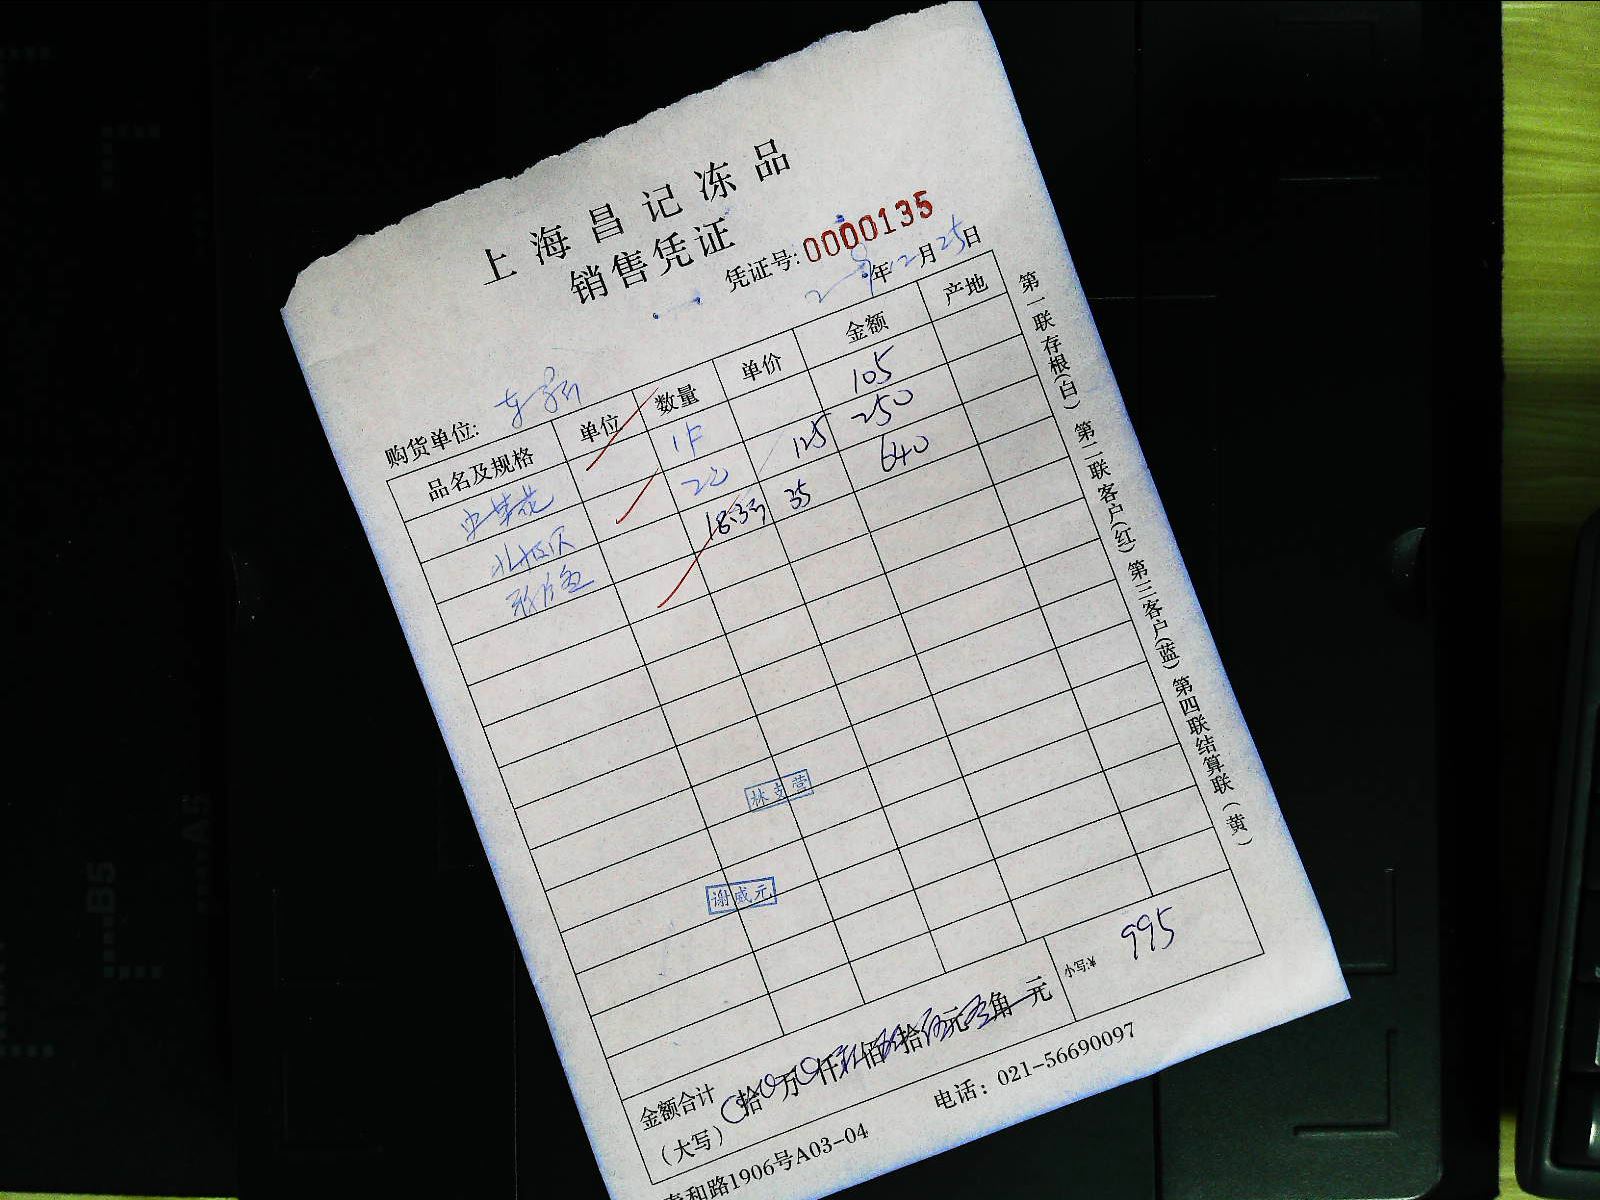 上海昌记冻品
销售凭证
凭证号: 0000135
年12月25日
购货单位:
品名及规格 单位 数量 单价 金额 产地
105
北极贝 125 250
18.3 35 640
林支营
谢威元
金额合计（大写） 拾 万 仟 佰 拾 元 角 元 小写:¥ 995
泰和路1906号A03-04 电话：021-56690097
第一联存根(白) 第二联客户(红) 第三客户(蓝) 第四联结算联(黄)
B5
A5